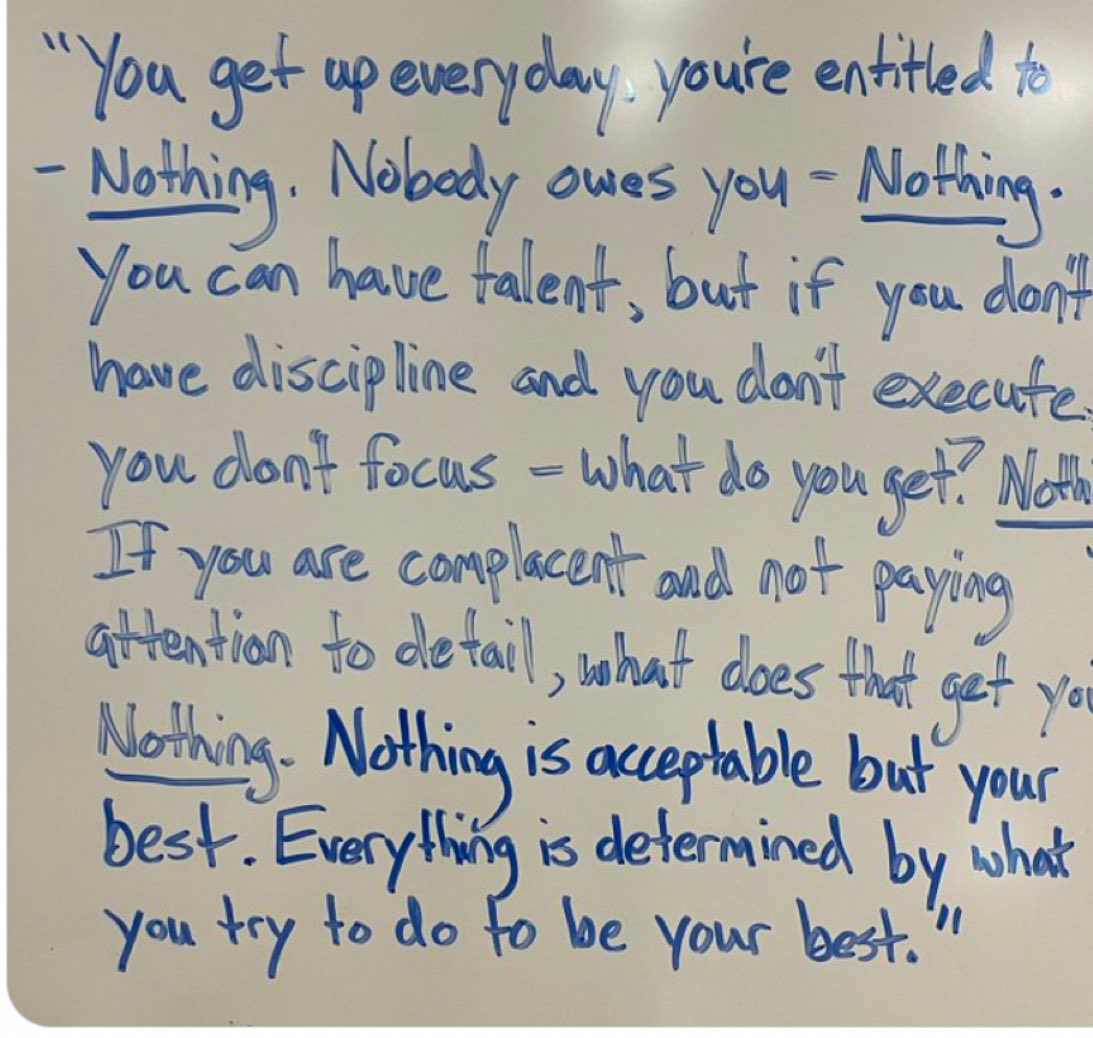 "You get up everyday, you're entitled to
- Nothing. Nobody owes you - Nothing.
You can have talent, but if you don't
have discipline and you don't execute,
you don't focus - what do you get? Nothi
If you are complacent and not paying
attention to detail, what does that get you
Nothing. Nothing is acceptable but your
best. Everything is determined by what
you try to do to be your best."